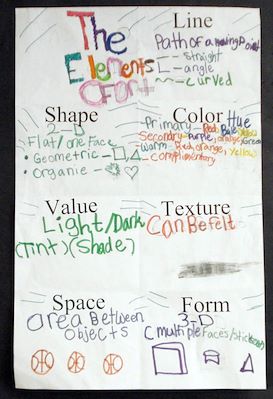 The
Elements
of Art
Line
Path of a moving Point
-- Straight
-- angle
-- curved
Shape
2-D
Flat/one Face
• Geometric -
• Organic -
Color Hue
Primary - Red, Blue, Yellow
Secondary - Purple, orange, Green
Warm - Red, orange, Yellow
- complimentary
Value
Light/Dark
(Tint) (Shade)
Texture
Can Be felt
Space
area Between
objects
Form
3-D
C multiple Faces/